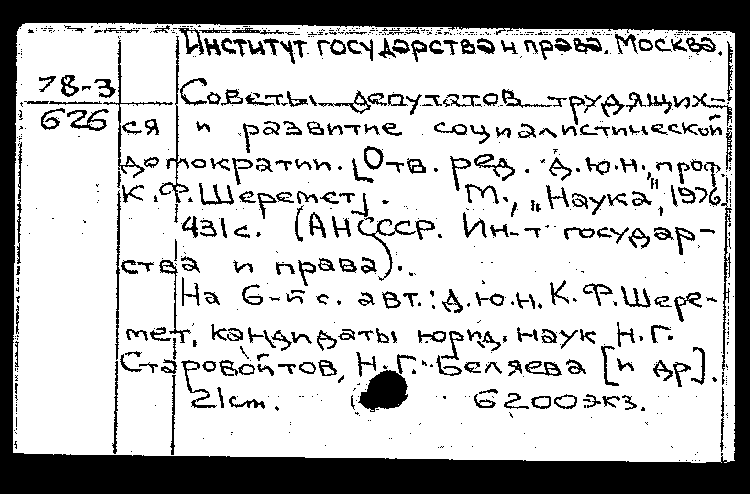 Институт государства и права. Москва.
78-3
Советы депутатов трудящих-
626
ся и развитие социалистической
демократии. [Отв. ред. д.ю.н., проф.
К.Ф.Шеремет]. М., „Наука", 1976.
431с. (АНСССР. Ин-т государ-
ства и права).
На 6-й с. авт.: д.ю.н. К.Ф.Шере-
мет, кандидаты юрид. наук Н.Г.
Старовойтов, Н.Г. Беляева [и др].
21см. 6200экз.